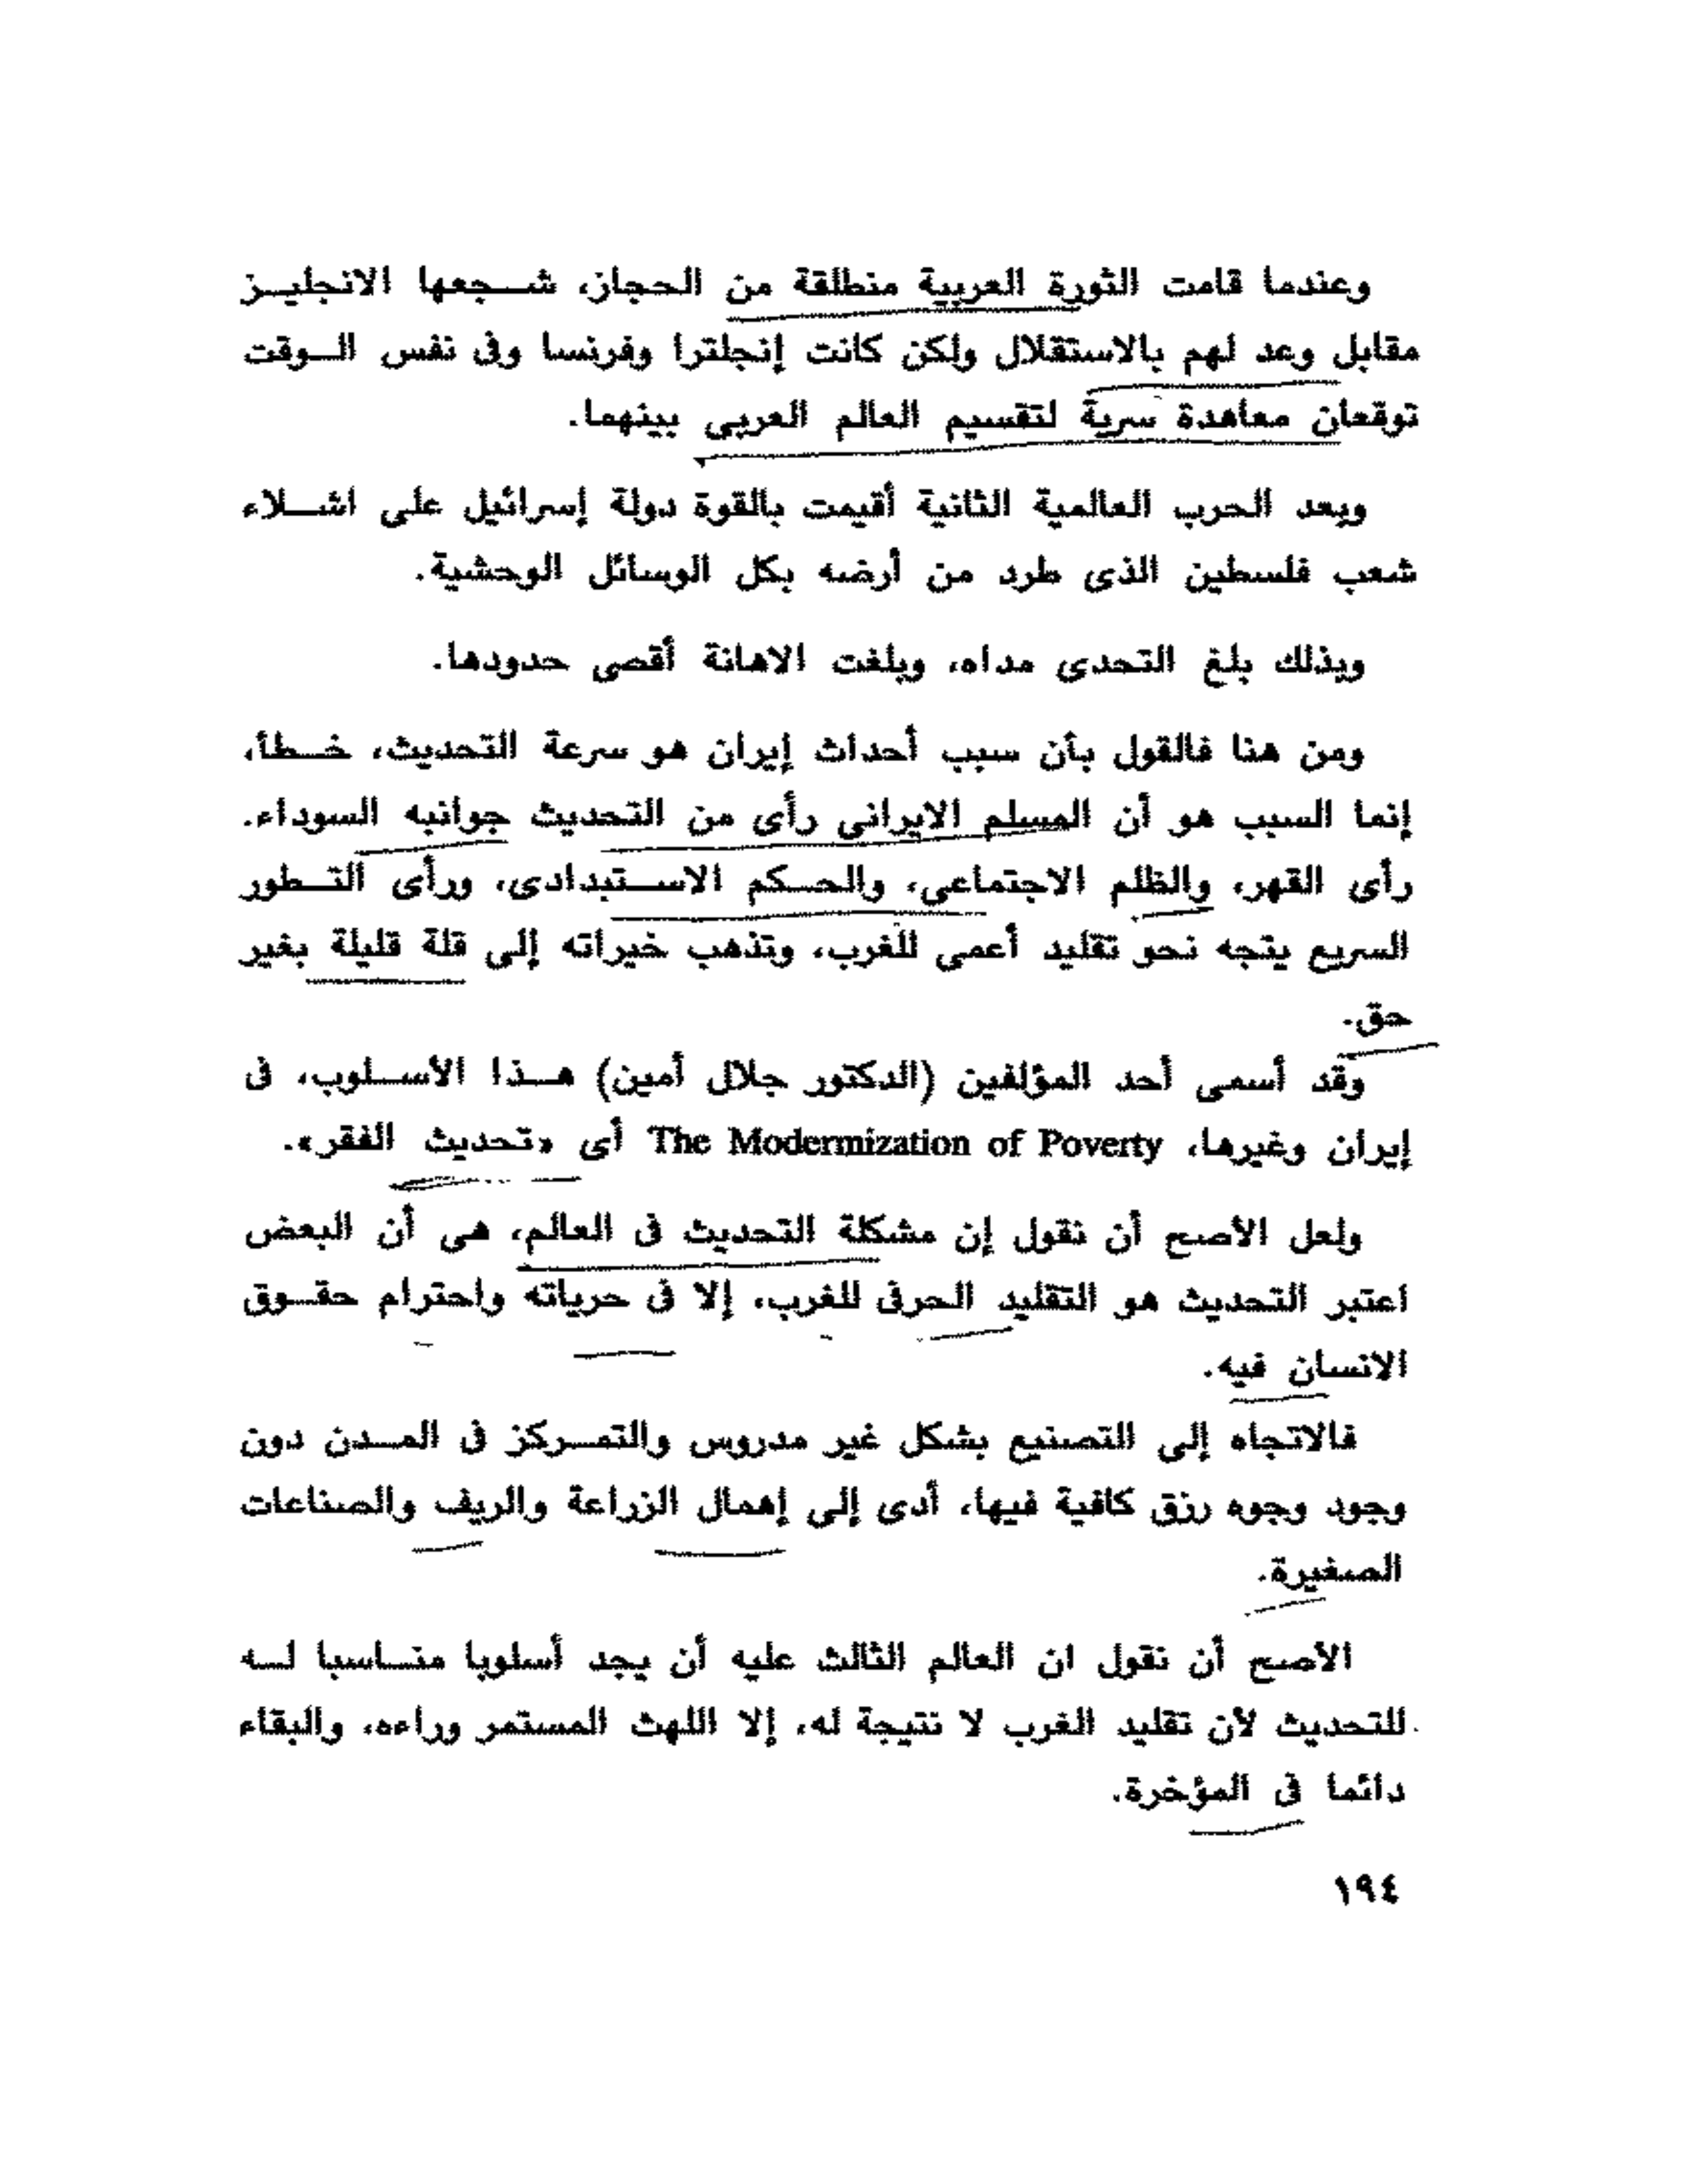 وعندما قامت الثورة العربية منطلقة من الحجاز، شجعها الانجليز
مقابل وعد لهم بالاستقلال ولكن كانت إنجلترا وفرنسا وفى نفس الوقت
توقعان معاهدة سرية لتقسيم العالم العربى بينهما.
وبعد الحرب العالمية الثانية أقيمت بالقوة دولة إسرائيل على اشلاء
شعب فلسطين الذى طرد من أرضه بكل الوسائل الوحشية.
وبذلك بلغ التحدى مداه، وبلغت الاهانة أقصى حدودها.
ومن هنا فالقول بأن سبب أحداث إيران هو سرعة التحديث، خطأ،
إنما السبب هو أن المسلم الايرانى رأى من التحديث جوانبه السوداء.
رأى القهر، والظلم الاجتماعى، والحكم الاستبدادى، ورأى التطور
السريع يتجه نحو تقليد أعمى للغرب، وتذهب خيراته إلى قلة قليلة بغير
حق.
وقد أسمى أحد المؤلفين (الدكتور جلال أمين) هذا الأسلوب، فى
إيران وغيرها، The Modermization of Poverty أى «تحديث الفقر».
ولعل الأصح أن نقول إن مشكلة التحديث فى العالم، هى أن البعض
اعتبر التحديث هو التقليد الحرفى للغرب، إلا فى حرياته واحترام حقوق
الانسان فيه.
فالاتجاه إلى التصنيع بشكل غير مدروس والتمركز فى المدن دون
وجود وجوه رزق كافية فيها، أدى إلى إهمال الزراعة والريف والصناعات
الصغيرة.
الأصح أن نقول ان العالم الثالث عليه أن يجد أسلوبا مناسبا له
للتحديث لأن تقليد الغرب لا نتيجة له، إلا اللهث المستمر وراءه، والبقاء
دائما فى المؤخرة.
١٩٤